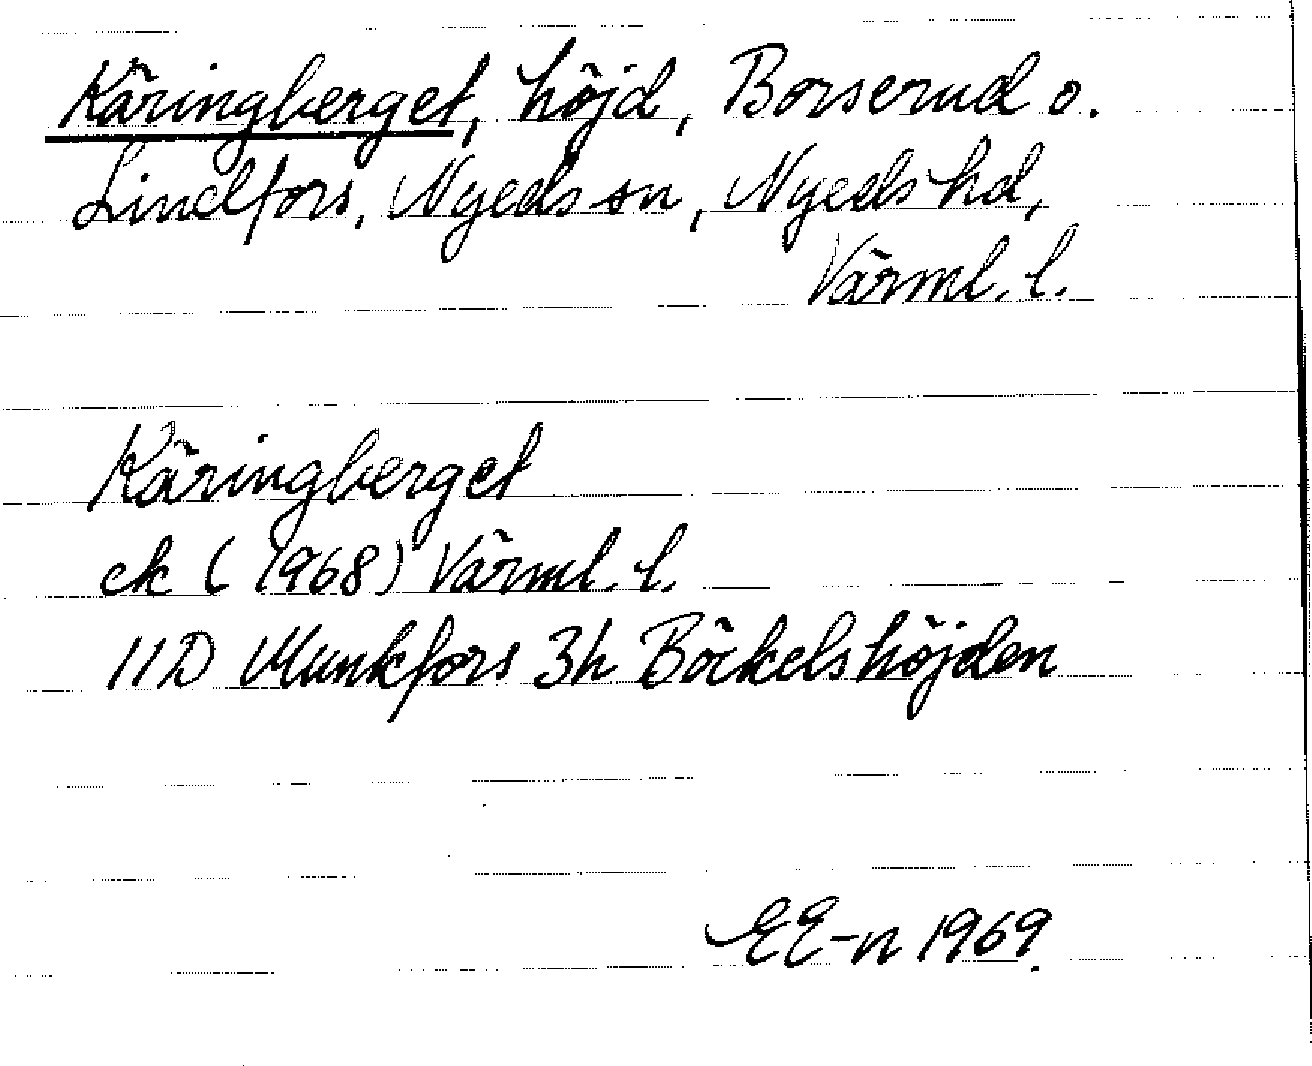 Käringberget, höjd, Borserud o.
Lindfors, Nyeds sn, Nyeds hd,
Värml. l.
Käringberget
ek (1968) Värml. l.
11D Munkfors 3h Böckelshöjden
EE-n 1969.